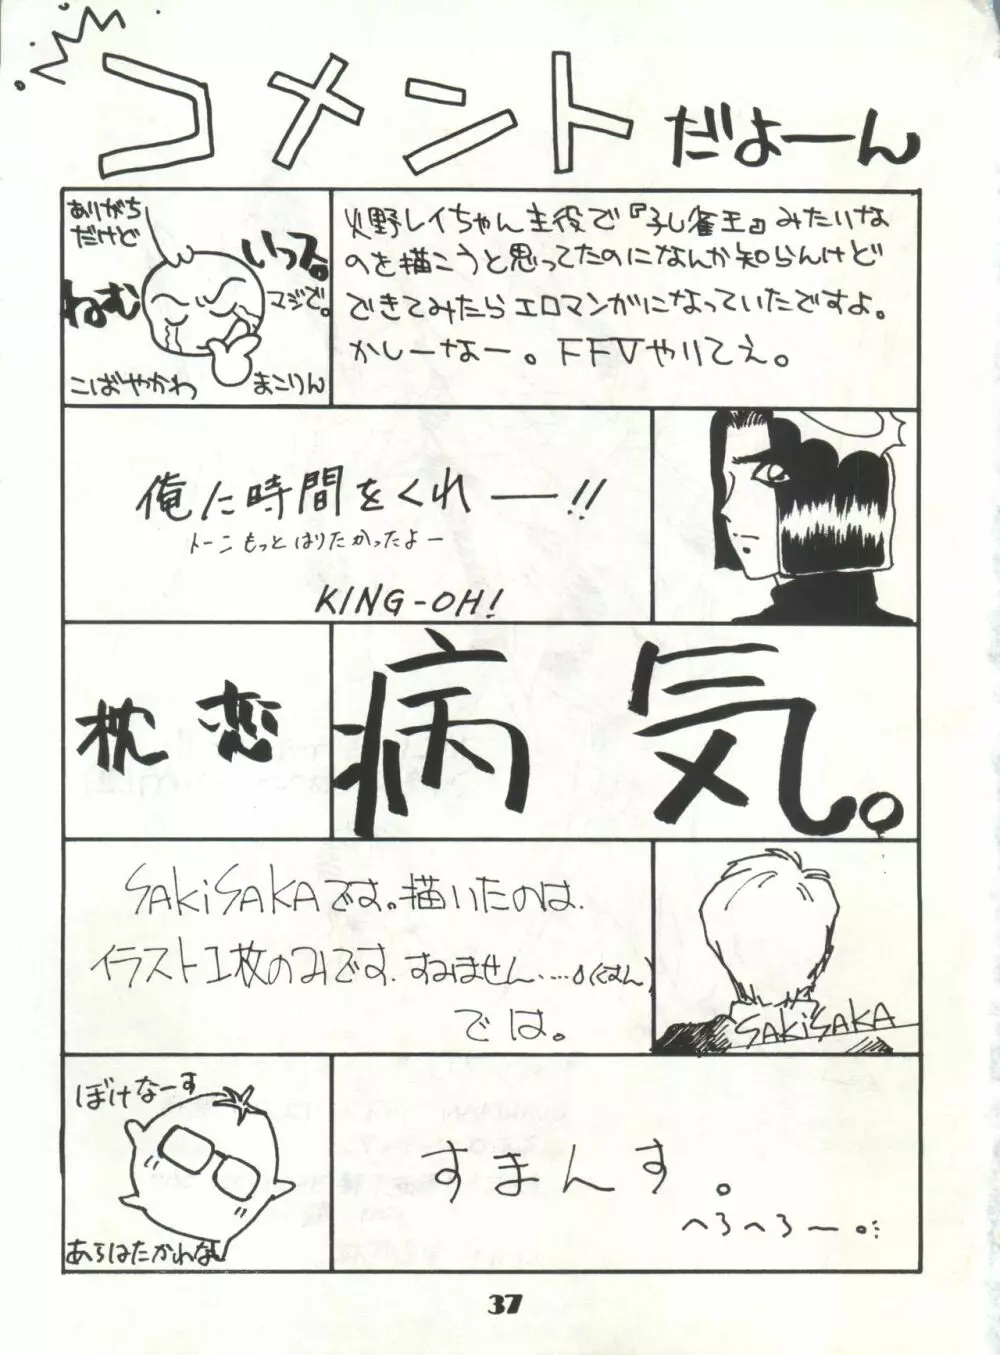 コメントだよーん
ありがち
だけど
ねむ
いっス。
マジで。
こばやかわ
まこりん
火野レイちゃん主役で『孔雀王』みたいな
のを描こうと思ってたのになんか知らんけど
できてみたらエロマンガになっていたですよ。
かしーなー。FFⅤやりてえ。
俺に時間をくれー!!
トーンもっとはりたかったよー
KING-OH!
枕恋
病気。
SAKiSAKAです。描いたのは、
イラスト1枚のみです。すみません…
では。
SAKiSAKA
ぼけなーす
すまんす。
へろへろー
37